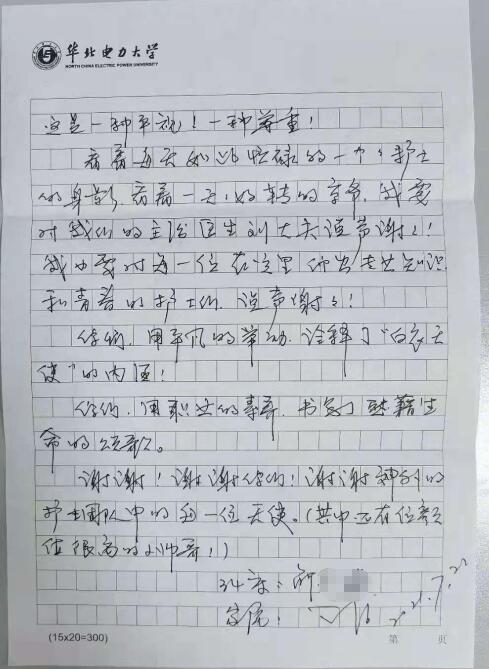 华北电力大学
NORTH CHINA ELECTRIC POWER UNIVERSITY
这是一种平视！一种尊重！
病着每天如此忙碌的一个个护士
的身影，病着一天天好转的亲爷，我要
对我们的主治医生刘大夫说声谢谢！
我也要对每一位在这里付出专业知识
和青春的护士们，说声谢谢！
你们，用平凡的举动，诠释了“白衣天
使”的内涵！
你们，用职业的素养，书写了慰藉生
命的颂歌。
谢谢！谢谢你们！谢谢神外的
护士团队中的每一位天使。（其中还有位颜
值很高的小帅哥！）
34床：
家属：
2021.7.22
(15x20=300)
第 页